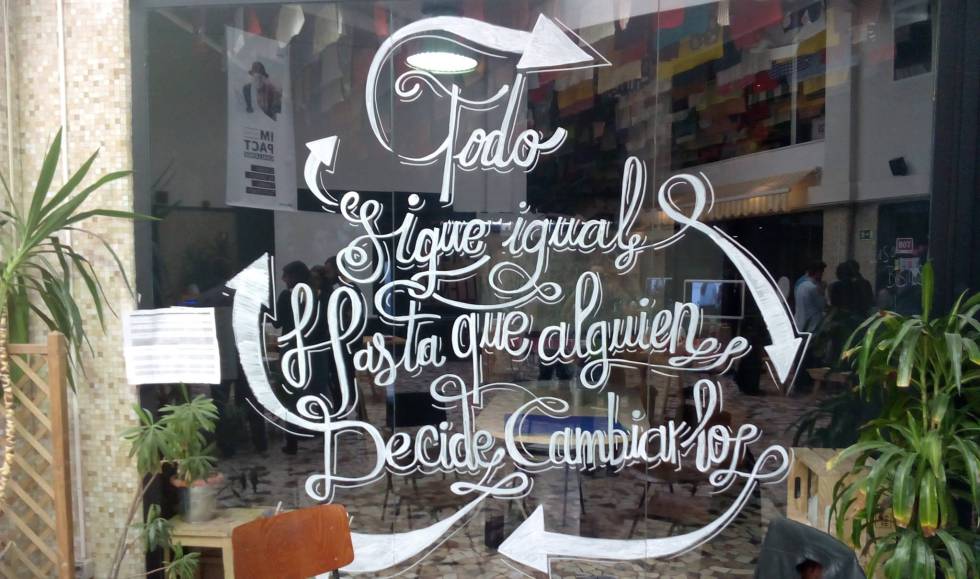 Todo
Sigue igual
Hasta que alguien
Decide Cambiarlos
IM
PACT